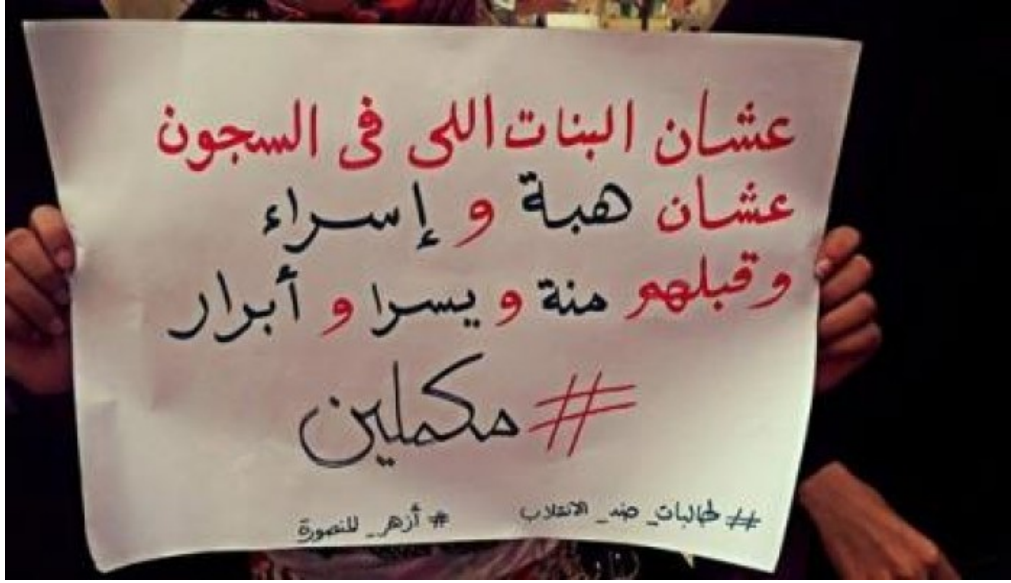 عشان البنات اللى فى السجون
عشان هبة و إسراء
وقبلهم منة و يسرا و أبرار
#مكملين
# طالبات_ضد_الانقلاب # أزهر_المنصورة